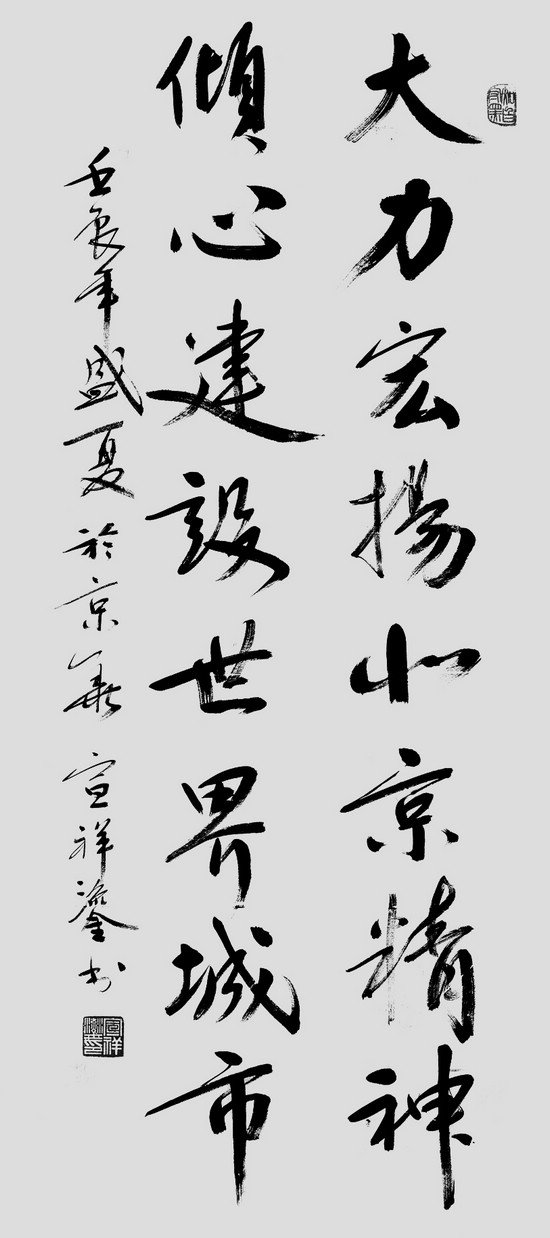 大力宏揚北京精神
傾心建設世界城市
壬辰年盛夏於京華 宣祥鎏书